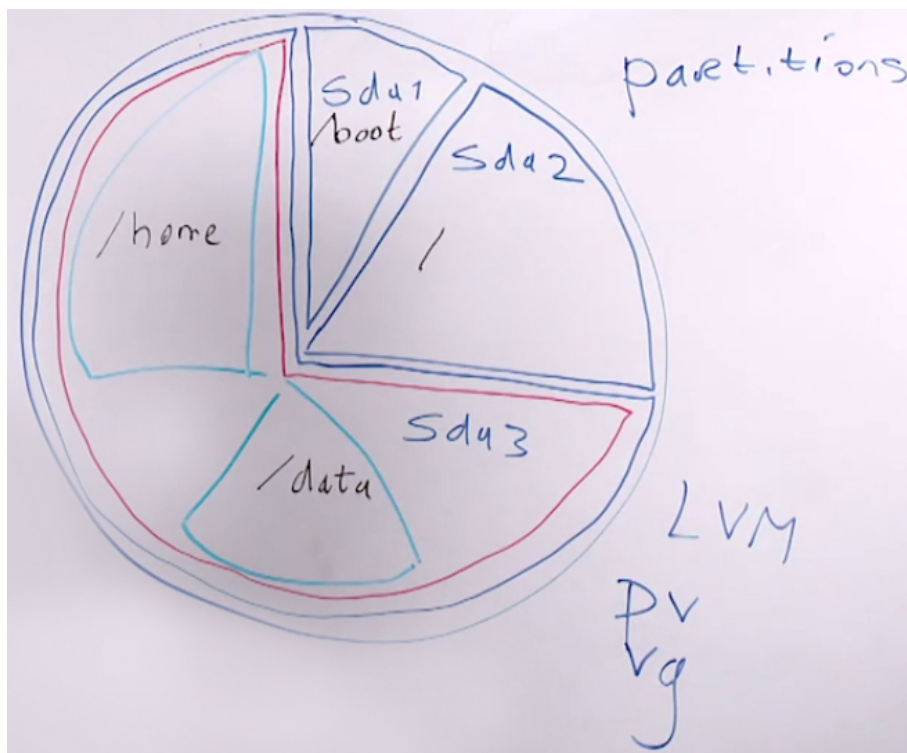 partitions
sda1
/boot
sda2
/home
/
sda3
/data
LVM
pv
vg